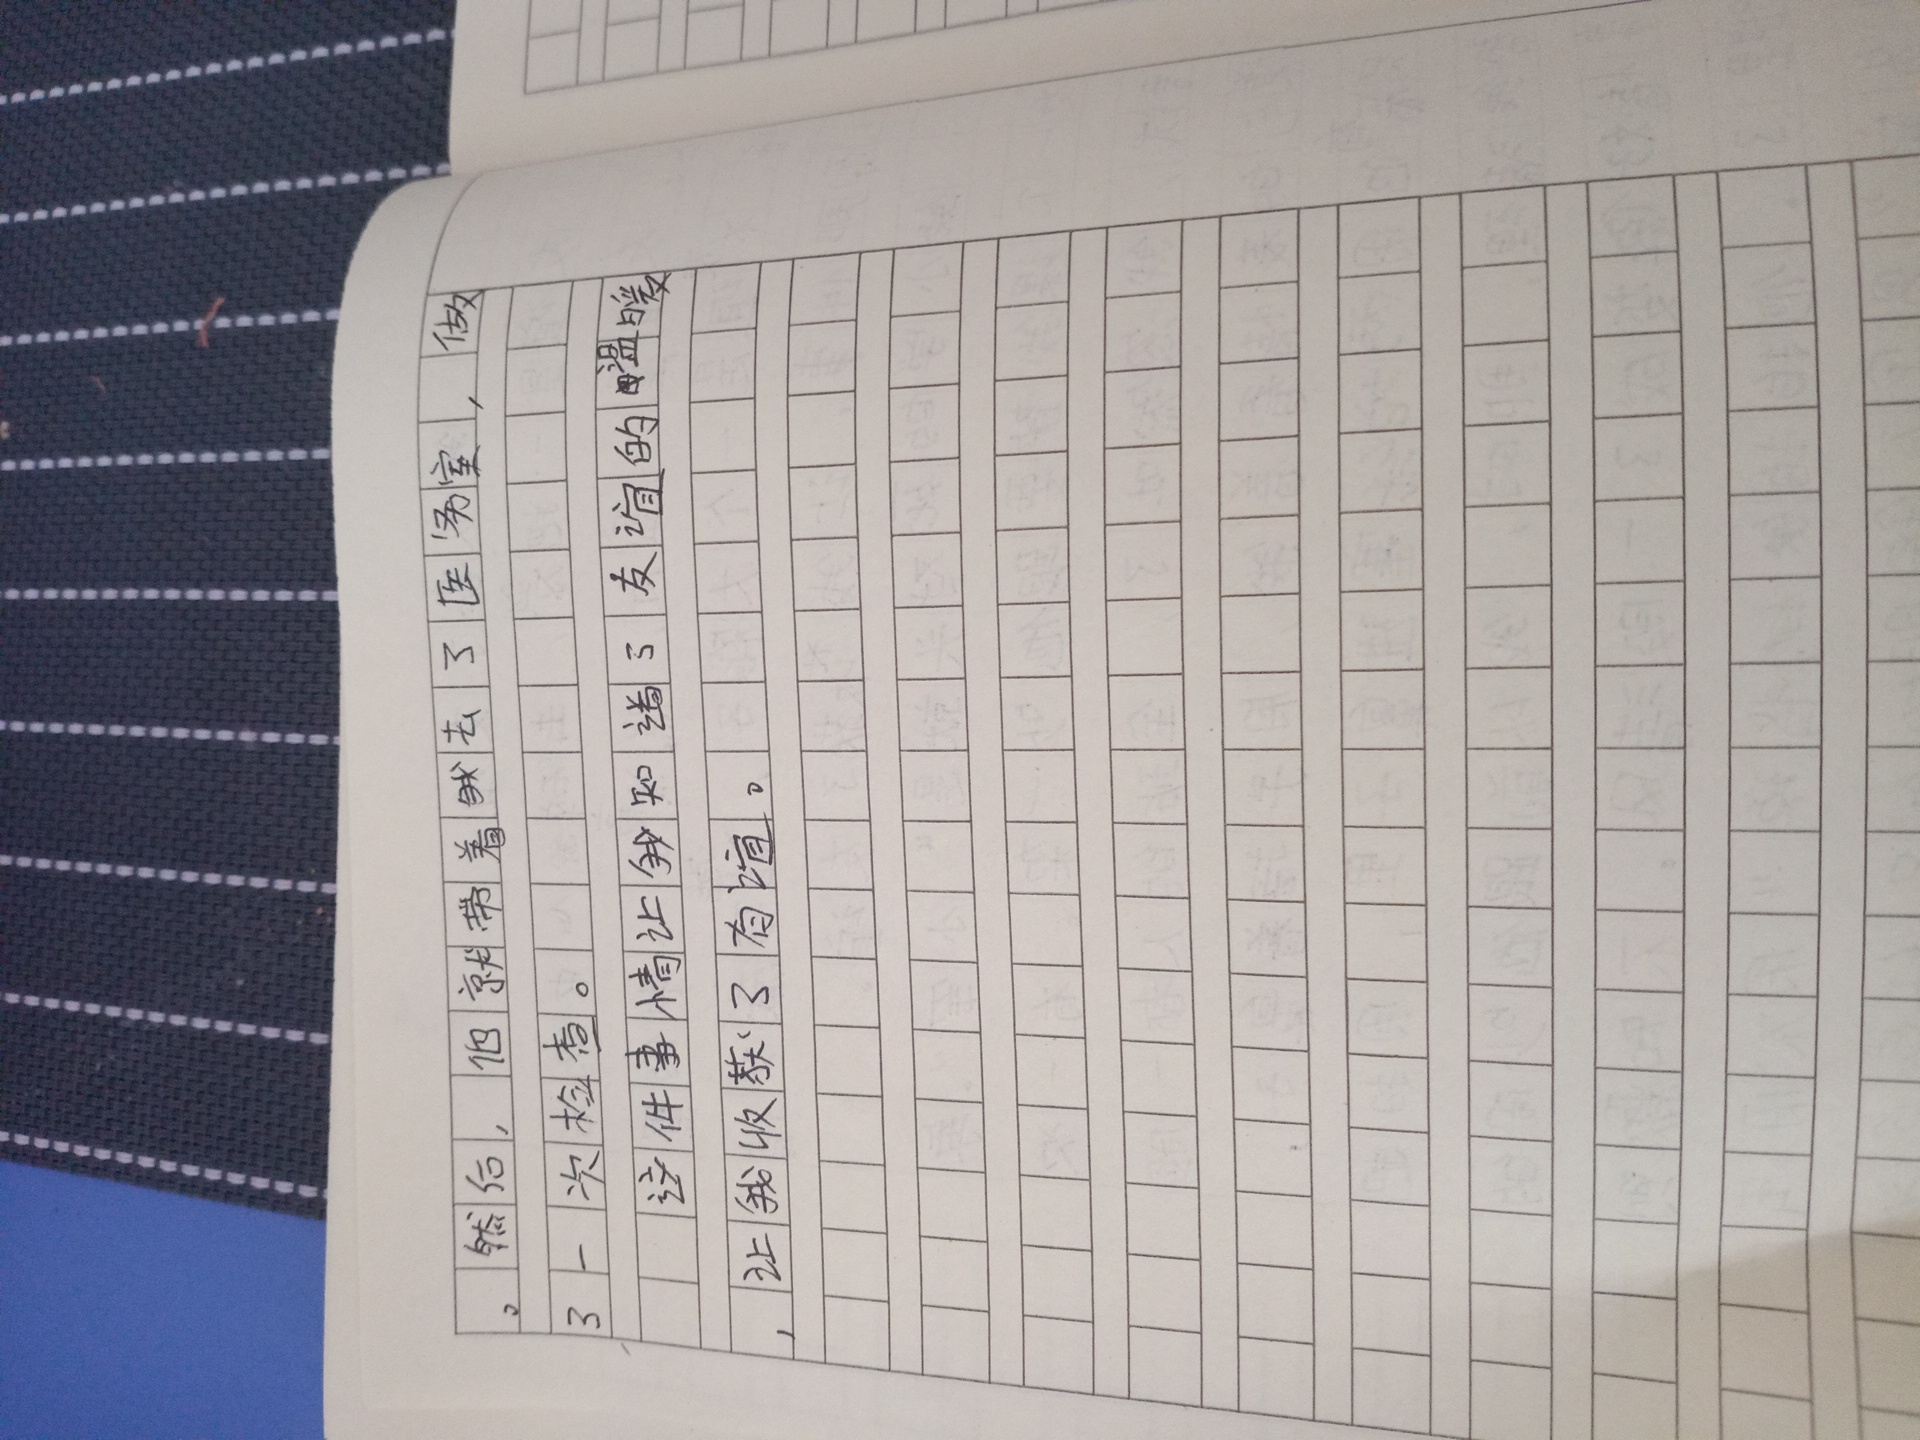 。然后,他就带着我去了医务室,做
了一次检查。
这件事情让我知道了友谊的温暖
,让我收获了有谊。